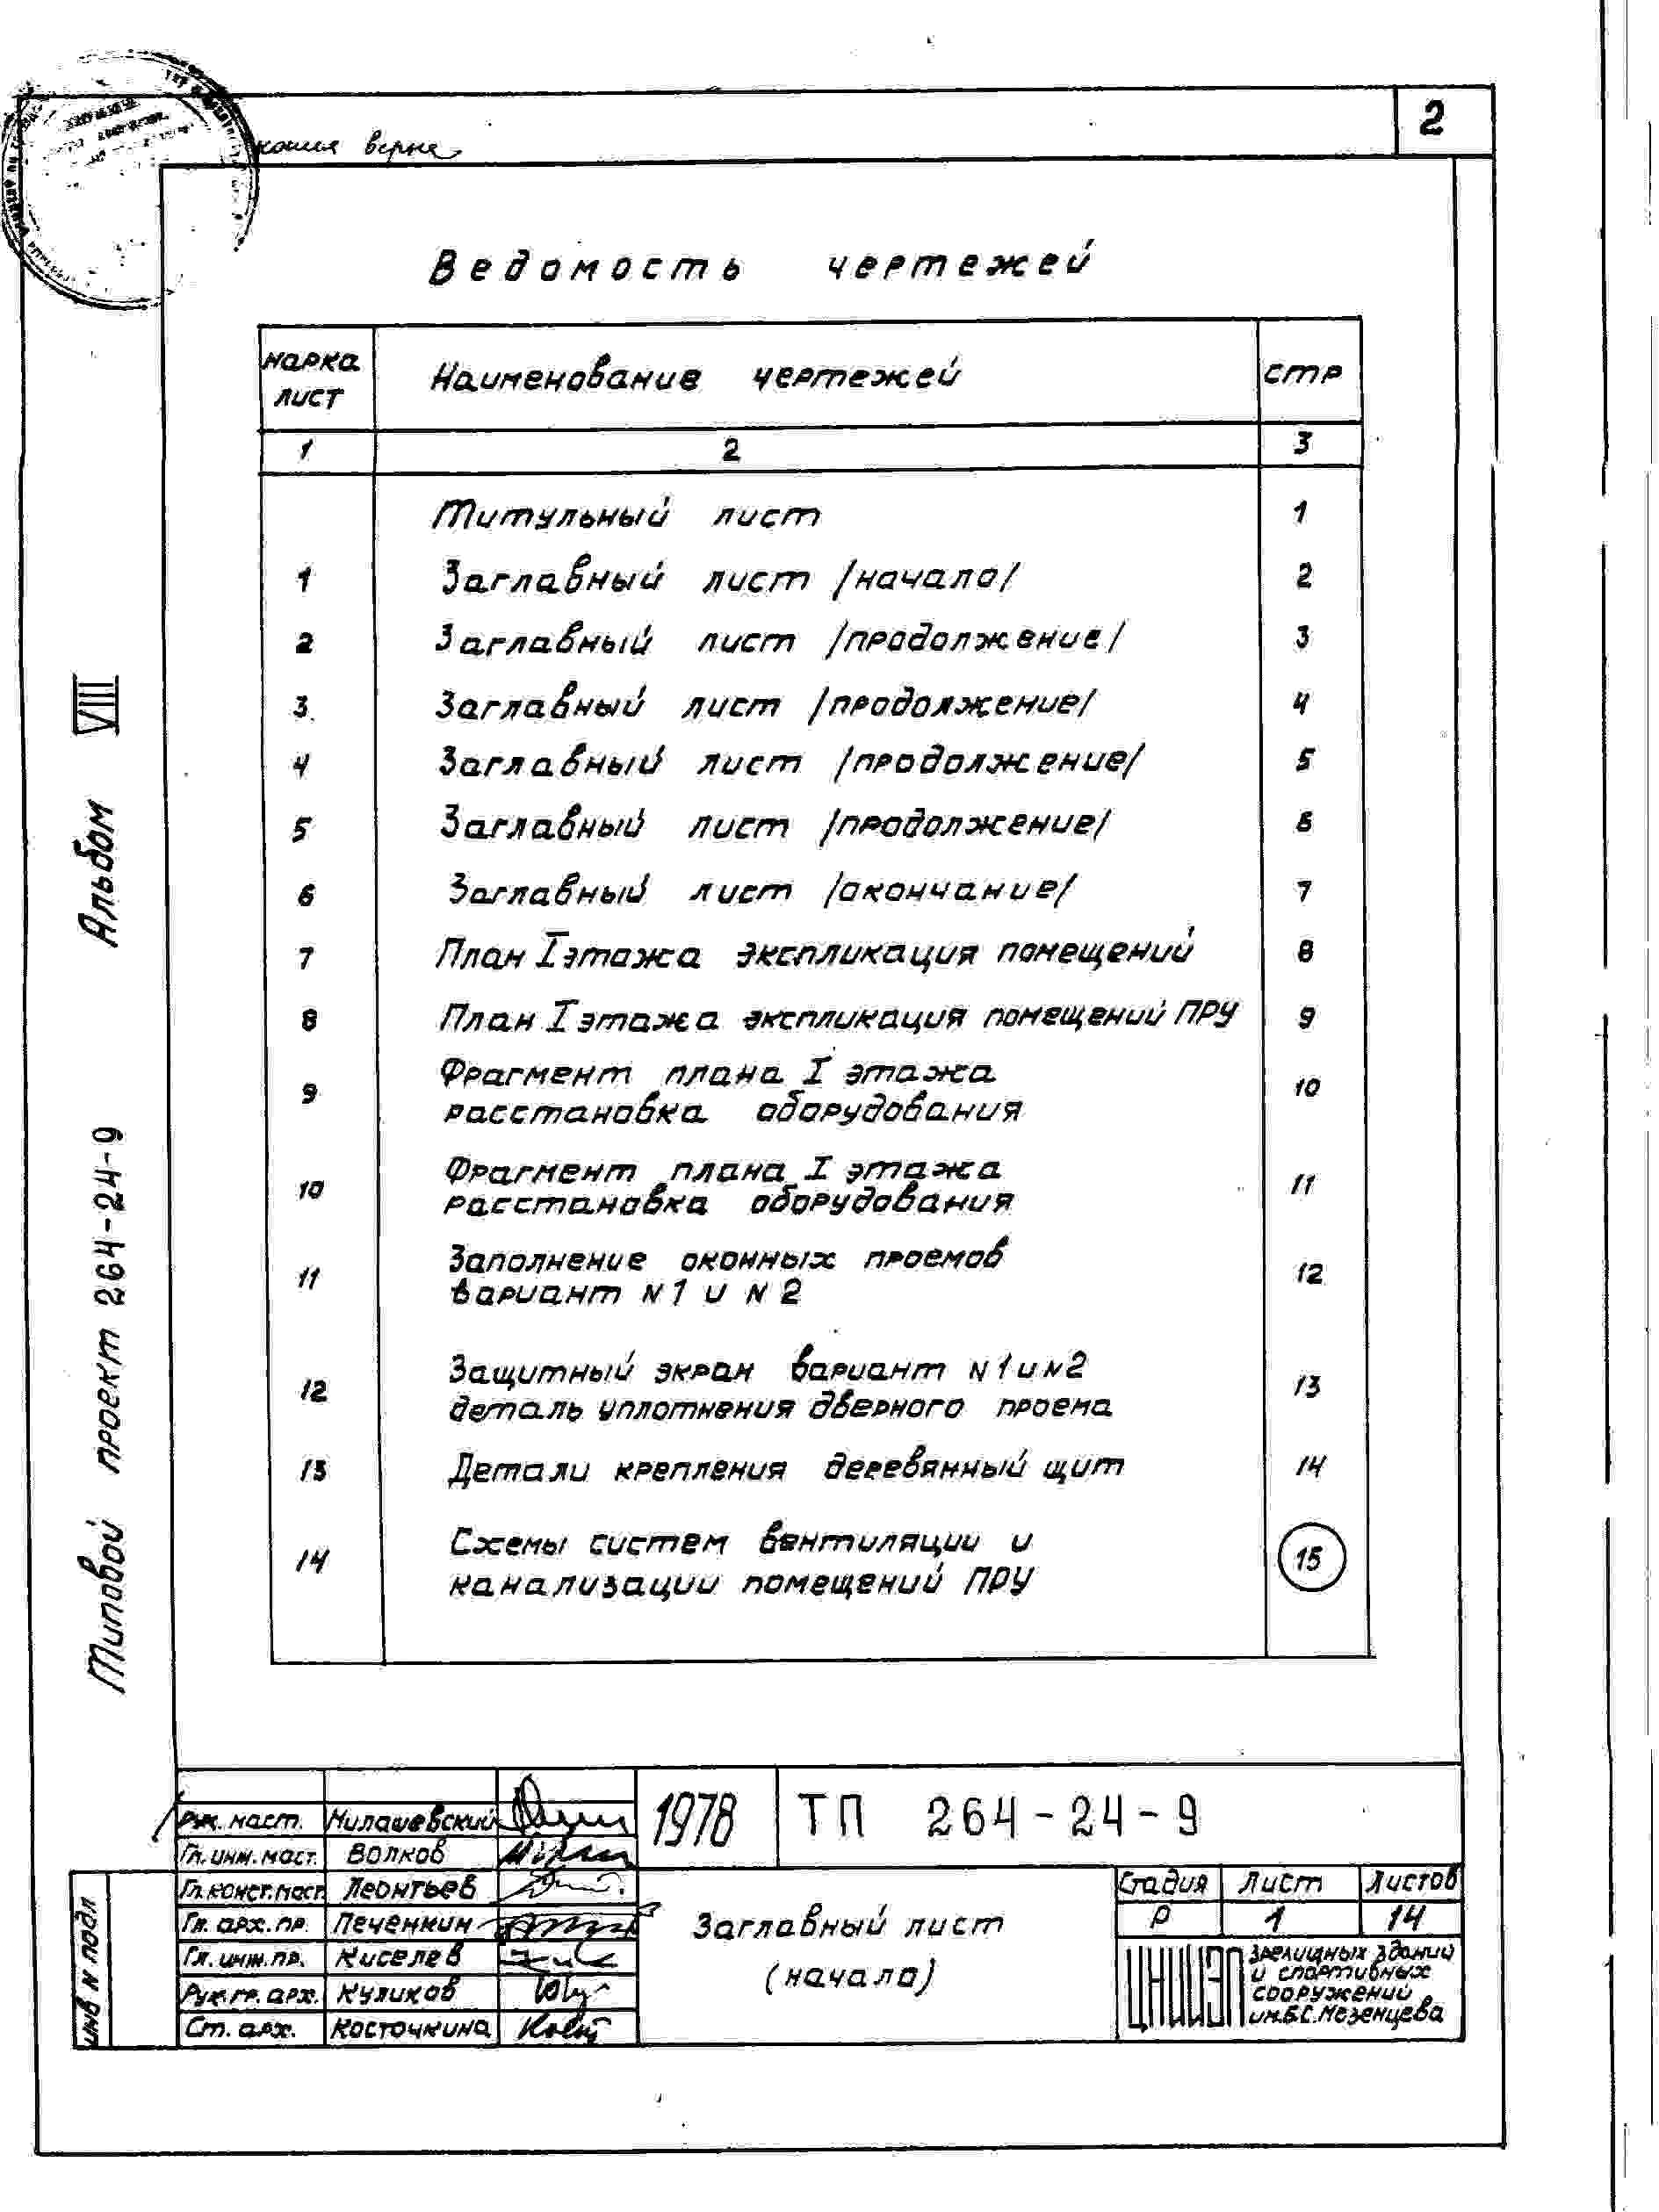 2
копия верна
Ведомость чертежей
марка лист | Наименование чертежей | стр
1 | 2 | 3
Титульный лист | 1
1 | Заглавный лист /начало/ | 2
2 | Заглавный лист /продолжение/ | 3
3 | Заглавный лист /продолжение/ | 4
4 | Заглавный лист /продолжение/ | 5
5 | Заглавный лист /продолжение/ | 6
6 | Заглавный лист /окончание/ | 7
7 | План I этажа экспликация помещений | 8
8 | План I этажа экспликация помещений ПРУ | 9
9 | Фрагмент плана I этажа | 10
расстановка оборудования
10 | Фрагмент плана I этажа | 11
расстановка оборудования
11 | Заполнение оконных проемов | 12
вариант N1 и N2
12 | Защитный экран вариант N1 и N2 | 13
деталь уплотнения дверного проема
13 | Детали крепления деревянный щит | 14
14 | Схемы систем вентиляции и | 15
канализации помещений ПРУ
Типовой проект 264-24-9 Альбом VIII
инв N подл
Рук. маст. | Милашевский
Гл. инж. маст. | Волков
Гл. конст. маст. | Леонтьев
Гл. арх. пр. | Печенкин
Гл. инж. пр. | Киселев
Рук. гр. арх. | Куликов
Ст. арх. | Косточкина
1978 | ТП 264-24-9
Заглавный лист
(начало)
Стадия | Лист | Листов
Р | 1 | 14
ЦНИИЭП
зрелищных зданий
и спортивных
сооружений
им. Б.С. Мезенцева